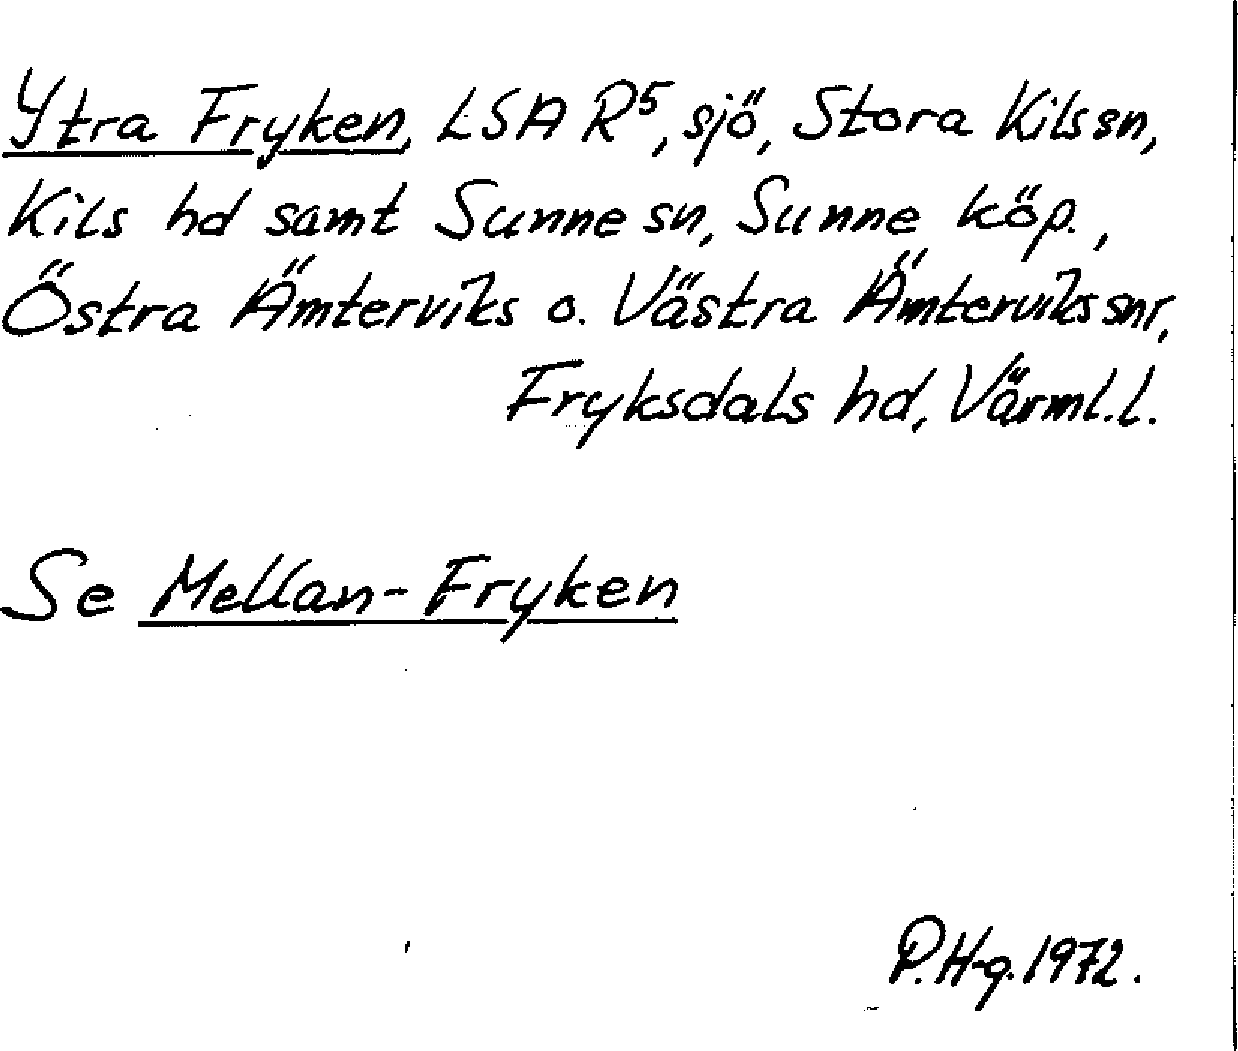 Ytra Fryken, LSA R⁵, sjö, Stora Kils sn,
Kils hd samt Sunne sn, Sunne köp.,
Östra Ämterviks o. Västra Ämterviks snr,
Fryksdals hd, Värml. l.
Se Mellan-Fryken
P.H-g. 1972.